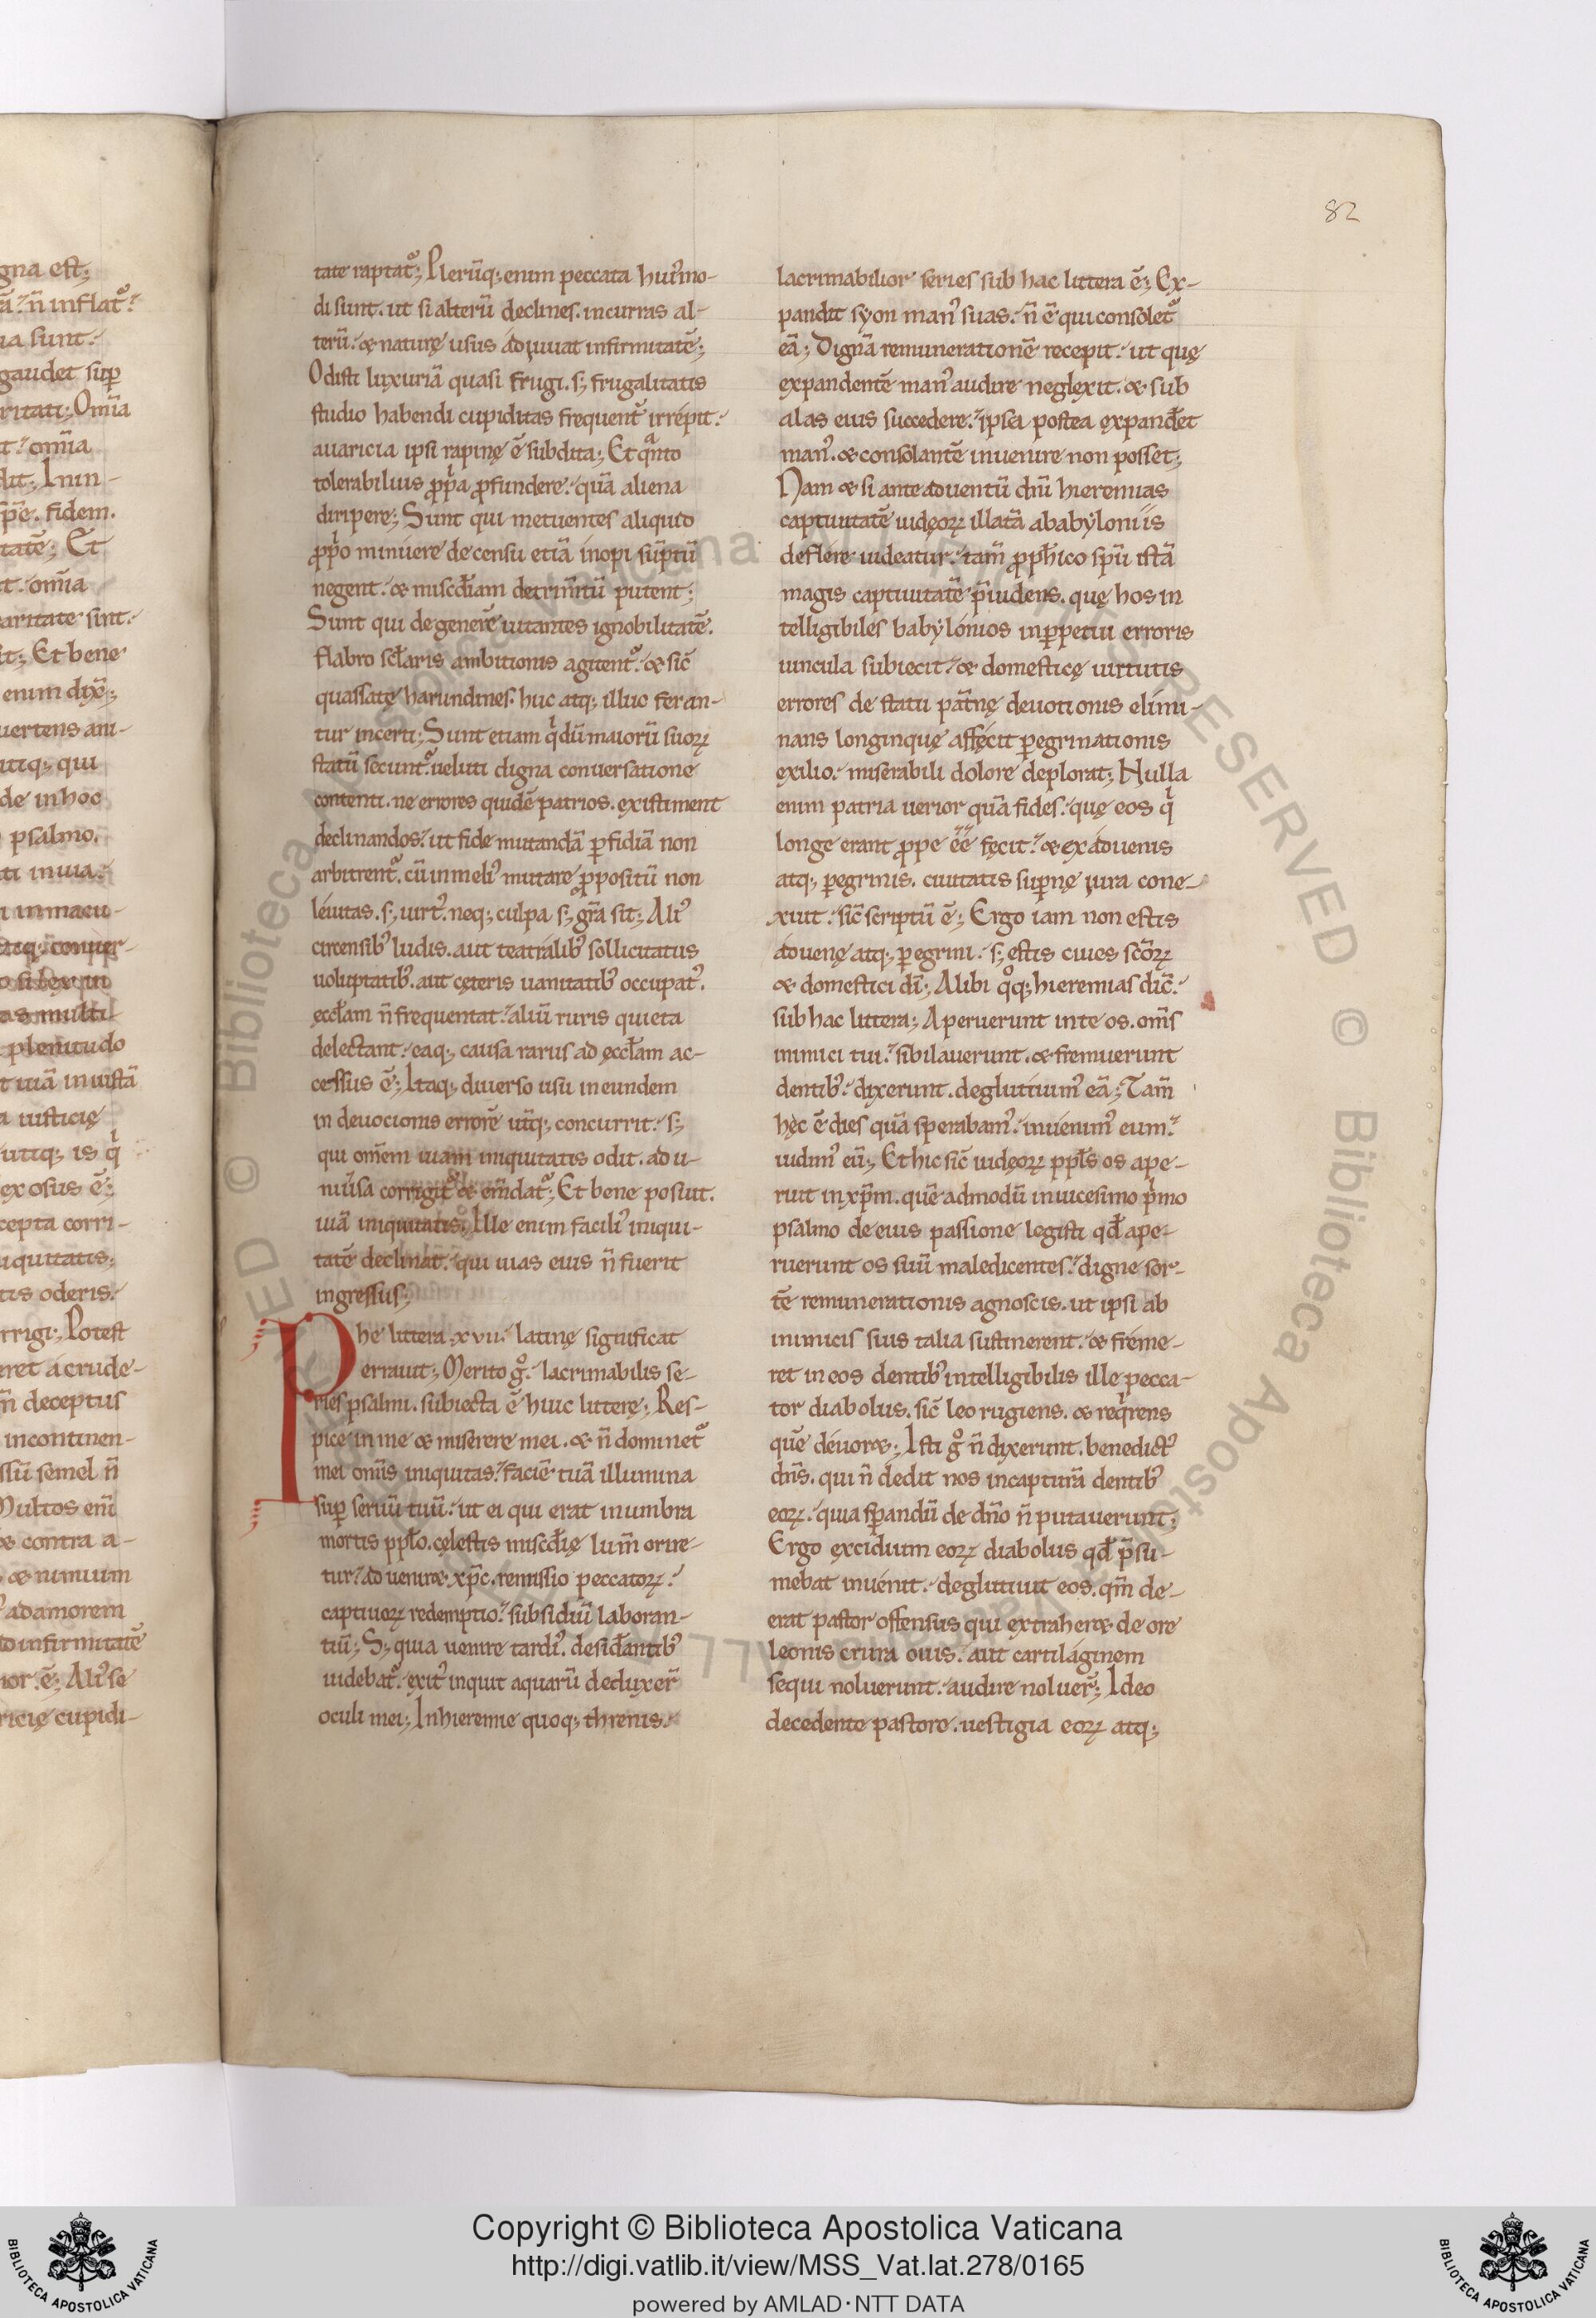 gna est;
ā? n̄ inflat᷑?
ia sunt.
gaudet suꝑ
ritati; Om̄a
t? om̄ia
dit; Inin-
spē. fidem.
tatē; Et
t. om̄ia
aritate sint.
it; Et bene
enim dix̄;
uertens ani-
itiq; qui
de inhoc
psalmo.
ti inuia.
i inmacu-
plenitudo
t uiā iniustā
a iusticię
utiq; is qͥ
exosus ē;
cepta corri-
iquitatis;
tis oderis.
rrigi; Potest
eret a crude-
n̄ deceptus
incontinen-
ssū semel n̄
Multos em̄
& contra a-
& nimium
adamorem
ad infirmitatē
ior. ē; Aliꝰ se
ricię cupidi-
82
tate raptat᷑; Plerūq; enim peccata huiꝰmo-
di sunt. ut si alterū declines. incurras al-
terū. & naturę usus adiuuat infirmitatē;
Odisti luxuriā quasi frugi. s; frugalitatis
studio habendi cupiditas frequent̄ irrépit.
auaricia ipsi rapinę ē subdita; Et qͣnto
tolerabilius ꝓpͥa ꝓfundere. quā aliena
diripere; Sunt qui metuentes aliquid
ꝓpͥo minuere de censu etiā inopi sūptū
negent. & misc̄diam detrim̄tū putent;
Sunt qui degenerē uitantes ignobilitatē.
flabro sc̄laris ambitionis agitent᷑. & sic̄
quassatę harundines. huc atq; illuc feran-
tur incerti; Sunt etiam qͥdū maiorū suoꝝ
statū secunt᷑. ueluti digna conuersatione
contenti. ne errores quidē patrios. existiment
declinandos. ut fide mutandā ꝑfidiā non
arbitrent᷑. cū inmeliꝰ mutare ꝓpositū non
léuitas. s; uirtꝰ. neq; culpa s; gr̄a sit; Aliꝰ
circensibꝰ ludis. aut teatrálibꝰ sollicitatus
uoluptatibꝰ. aut cęteris uanitatibꝰ occupatꝰ.
ęccl̄am n̄ frequentat. aliū ruris quieta
delectant. eaq; causa rarus ad ęccl̄am ac-
cessus ē; Itaq; diuerso usu in eundem
in deuocionis errorē ut̄q; concurrit. s;
qui om̄em uiam iniquitatis odit. ad u-
niūsa corrigit᷑ & em̄dat᷑; Et bene posuit.
uiā iniquitatis; Ille enim faciliꝰ iniqui-
tatē declinat. qui uias eius n̄ fuerit
ingressus;
Phe littera .xvii. latinę significat
errauit; Merito gͦ. lacrimabilis se-
ries psalmi. subiecta ē huic litterę; Res-
pice in me & miserere mei. & n̄ dominet᷑
mei omīs iniquitas. faciē tuā illumina
suꝑ seruū tuū. ut ei qui erat inumbra
mortis ppl̄o. cęlestis misc̄dię lum̄ orire-
tur. ad ueniræ xp̄c. remissio peccatoꝝ.
captiuoꝝ redemptio. subsidiū laboran-
tiū; S; quia uenire tardiꝰ. desid̄antibꝰ
uidebat᷑. exitꝰ inquit aquarū deduxer̄
oculi mei; Inhieremie quoq; threnis.
lacrimabilior series sub hac littera ē; Ex-
pandit syon manꝰ suas. n̄ ē qui consolet᷑
eā; Dignā remunerationē recepit. ut quę
expandentē manꝰ audire neglexit. & sub
alas eius succedere. ipsa postea expand̄et
manꝰ. & consolantē inuenire non posset;
Nam & si ante aduentū dn̄i hieremias
captiuitatē iudęoꝝ illatā ababyloniis
deflere uideatur. tam̄ ꝓph̄ico sp̄u istā
magis captiuitatē p̄uidens. quę hos in
telligibiles babylónios inꝑpetui erroris
uincula subiecit. & domesticę uirtutis
errores de statu pat̄nę deuotionis elimi-
nans longinquę affecit ꝑegrinationis
exilio. miserabili dolore deplorat; Nulla
enim patria uerior quā fides. quę eos qͥ
longe erant ꝓpe ēē fecit. & ex áduenis
atq; ꝑegrinis. ciuitatis suꝑnę iura cone-
xiut. sic̄ scriptū ē; Ergo iam non estis
áduenę atq; ꝑegrini. s; estis ciues sc̄oꝝ
& domestici dī; Alibi qͦq; hieremias dic̄.
sub hac littera; Aperuerunt inte os. om̄s
inimici tui. sibilauerunt. & fremuerunt
dentibꝰ. dixerunt. deglutiuimꝰ eā; Tam̄
hęc ē dies quā sperabamꝰ. inuenimꝰ eum.
uidimꝰ eū; Et hic sic̄ iudęoꝝ ppl̄s os ape-
ruit in xp̄m. quē admodū in uicesimo pͥmo
psalmo de eius passione legisti qd̄ ape-
ruerunt os suū maledicentes. digne sor-
tē remunerationis agnoscis. ut ipsi ab
inimicis suis talia sustinerent. & freme-
ret in eos dentibꝰ intelligibilis ille pecca-
tor diabolus. sic̄ leo rugiens. & reqͥrens
quē déuoræ; Isti gͦ n̄ dixerunt. benedictꝰ
dn̄s. qui n̄ dedit nos incapturā dentibꝰ
eoꝝ. quia sꝑandū de dn̄o n̄ putauerunt;
Ergo excidium eoꝝ diabolus qd̄ p̄su-
mebat inuénit. deglutiuit eos. qm̄ de-
erat pastor offensus qui extraheræ de ore
leonis crura ouis. aut cartiláginem
sequi noluerunt. audire noluer̄; Ideo
decedente pastore. uestigia eoꝝ atq;
Copyright © Biblioteca Apostolica Vaticana
http://digi.vatlib.it/view/MSS_Vat.lat.278/0165
powered by AMLAD·NTT DATA